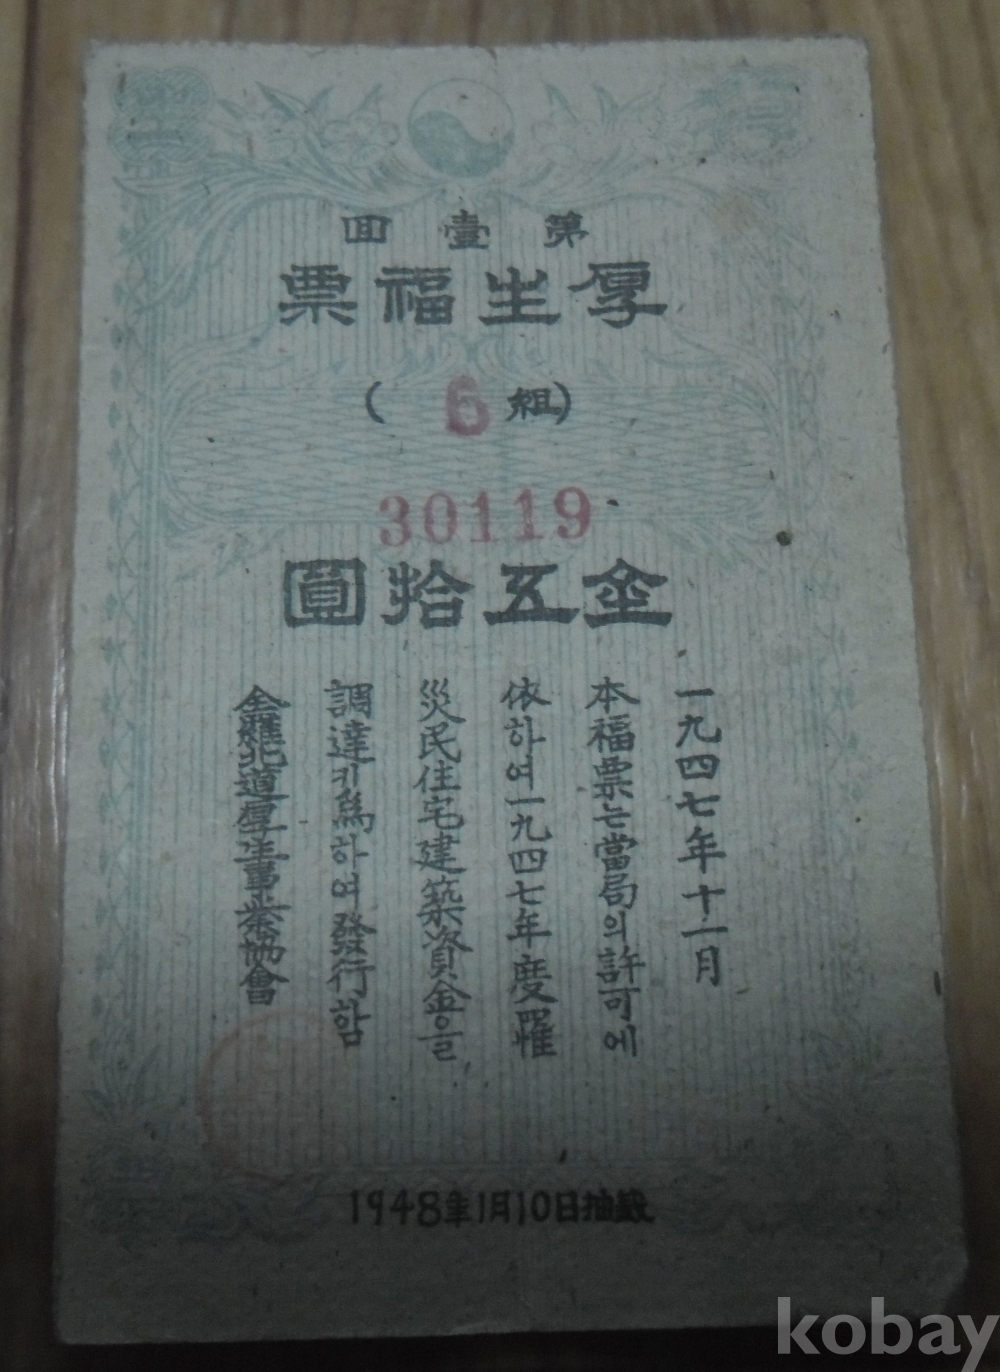 第壹回
厚生福票
( 6 組)
30119
金五拾圓
一九四七年十一月
本福票는當局의許可에
依하여一九四七年度罹
災民住宅建築資金을
調達키爲하여發行함
全羅北道厚生事業協會
1948年1月10日抽籤
kobay